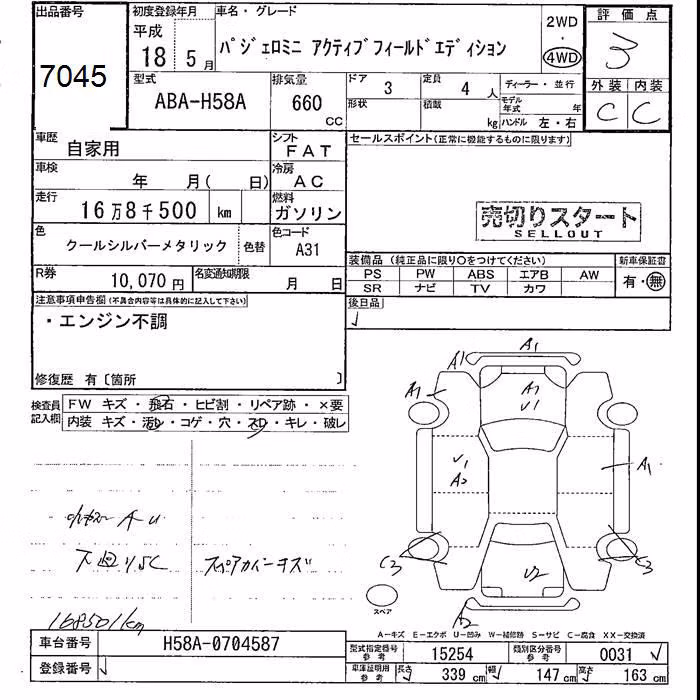 出品番号
7045
初度登録年月
平成
18 年 5 月
車名・グレード
パジェロミニ アクティブフィールドエディション
2WD
・
4WD
評価点
3
外装 内装
C C
型式
ABA-H58A
排気量
660
CC
ドア
3
形状
定員
4 人
積載
kg
ディーラー・並行
モデル年式 年
ハンドル 左・右
車歴
自家用
シフト
FAT
車検
年 月( 日)
冷房
AC
走行
16万8千500 km
燃料
ガソリン
色
クールシルバーメタリック
色替
色コード
A31
R券
10,070円
名変通知期限
月 日
セールスポイント(正常に機能するものに限ります)
売切りスタート
SELLOUT
装備品 (純正品に限り○をつけてください)
PS PW ABS エアB AW
SR ナビ TV カワ
新車保証書
有・無
後日品
注意事項申告欄(不具合内容等は具体的に記入して下さい)
・エンジン不調
修復歴 有〔箇所 〕
検査員記入欄
FW キズ・飛石・ヒビ割・リペア跡・×要
内装 キズ・汚レ・コゲ・穴・スレ・キレ・破レ
A・U
スペアカバーキズ
168501km
A1
A1
A1
A1
V1
V1
A2
A1
C3
C3
V2
A2
スペア
A-キズ E-エクボ U-凹み W-補修跡 S-サビ C-腐食 XX-交換済
車台番号
H58A-0704587
登録番号
型式指定番号
参考
15254
類別区分番号
参考
0031
車庫証明用
参考
長さ 339 cm 幅 147 cm 高さ 163 cm